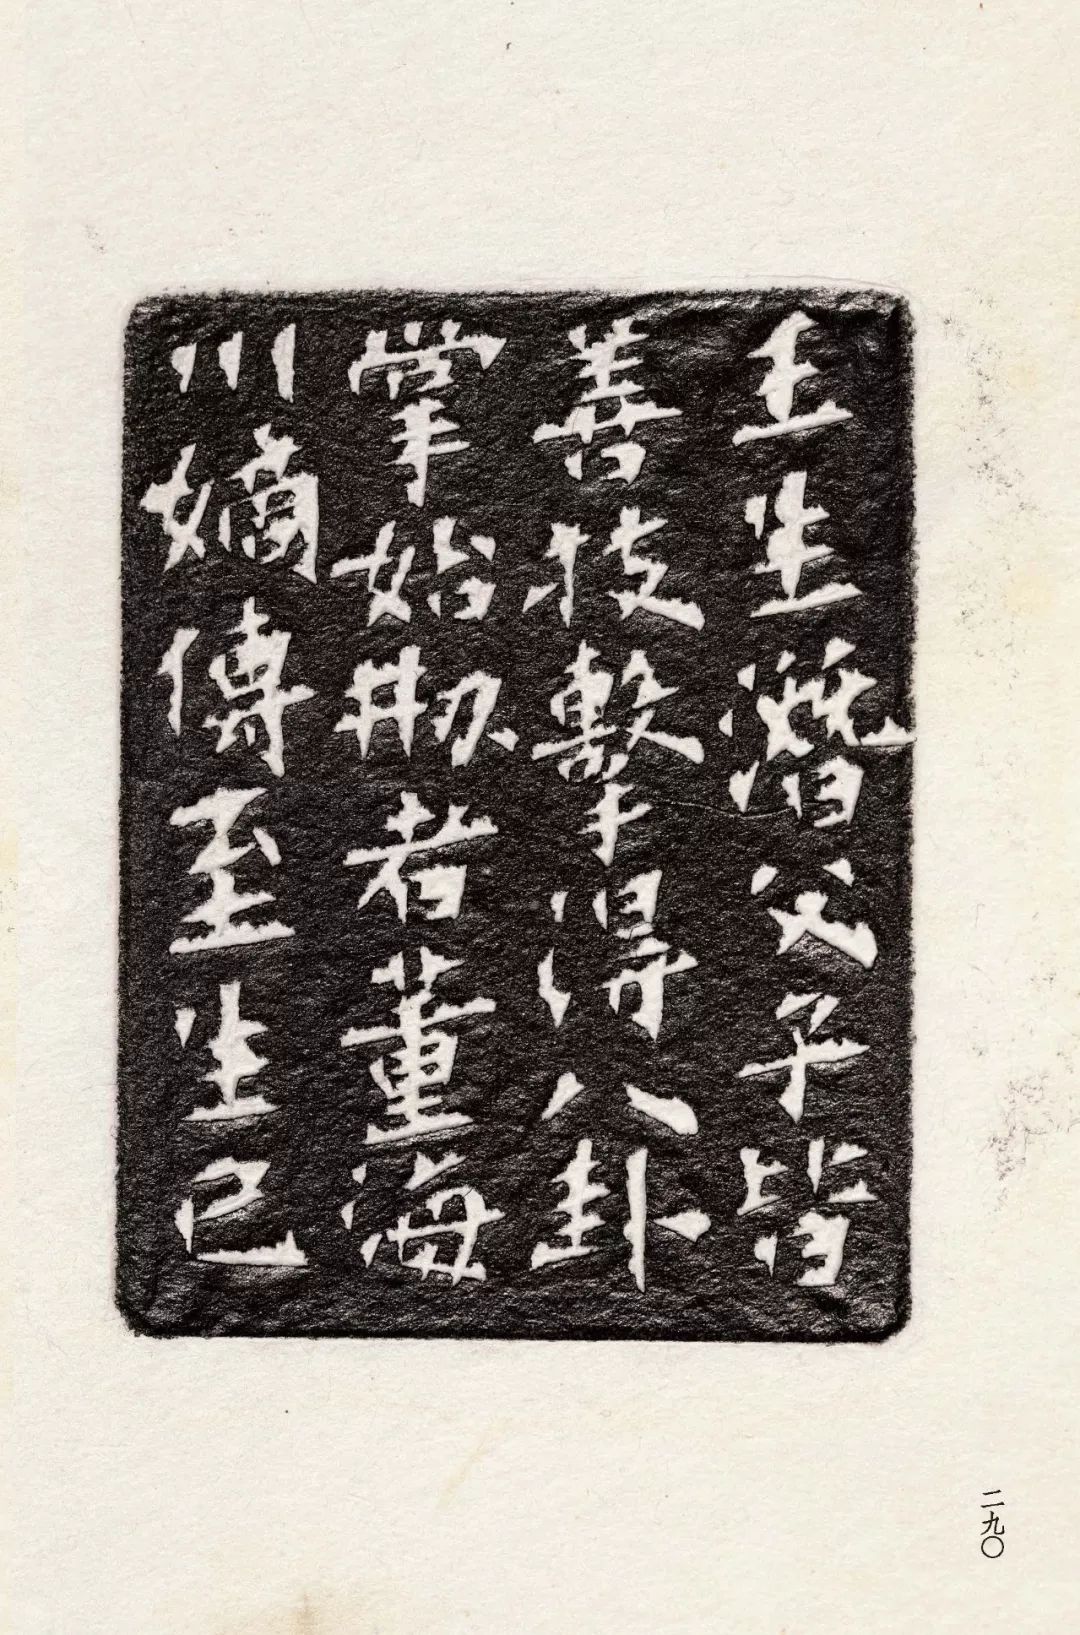 王生潛父子皆
善技擊得八卦
掌始刱者董海
川嫡傳至生已
二九〇